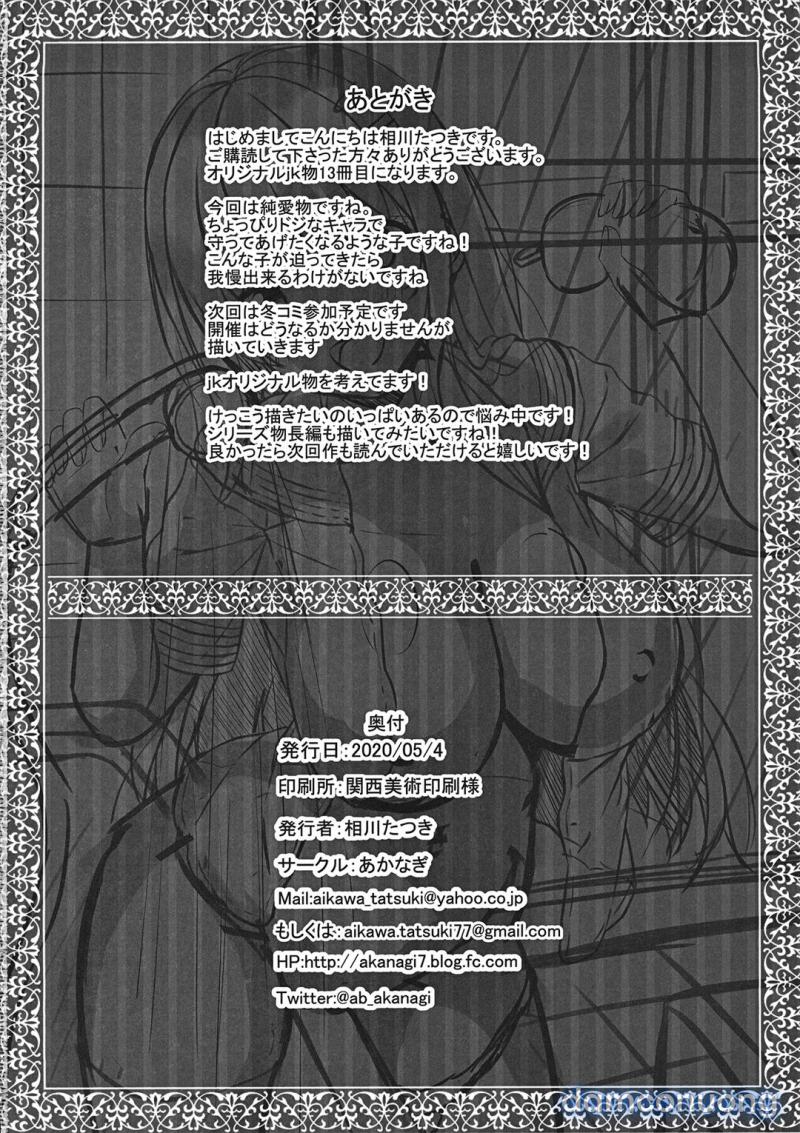 あとがき
はじめましてこんにちは相川たつきです。
ご購読して下さった方々ありがとうございます。
オリジナルjk物13冊目になります。
今回は純愛物ですね。
ちょっぴりドジなキャラで
守ってあげたくなるような子ですね！
こんな子が迫ってきだら
我慢出来るわけがないですね
次回は冬コミ参加予定です
開催はどうなるか分かりませんが
描いていきます
jkオリジナル物を考えてます！
けっこう描きたいのいっぱいあるので悩み中です！
シリーズ物長編も描いてみたいですね!!
良かったら次回作も読んでいただけると嬉しいです！
奥付
発行日：2020/05/4
印刷所：関西美術印刷様
発行者：相川たつき
サークル：あかなぎ
Mail:aikawa_tatsuki@yahoo.co.jp
もしくは：aikawa.tatsuki77@gmail.com
HP:http://akanagi7.blog.fc.com
Twitter:@ab_akanagi